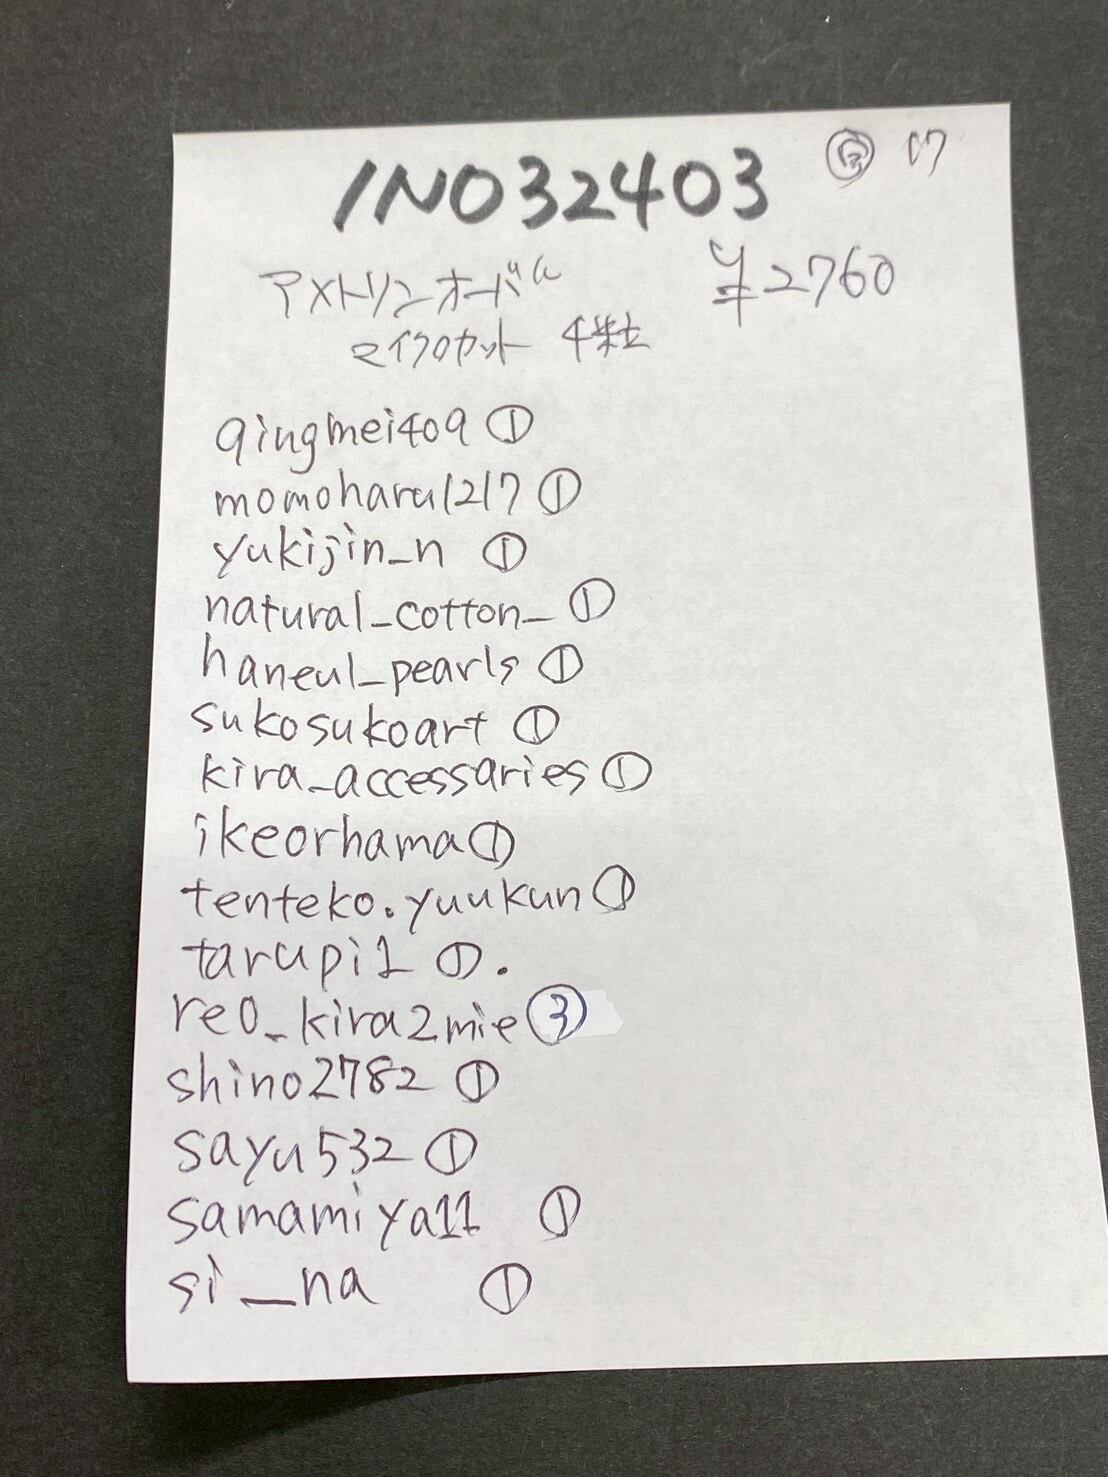 INO32403
アメトリンオーバル ¥2760
マイクロカット 4粒
qingmei409 ①
momoharu1217 ①
yukijin_n ①
natural_cotton_ ①
haneul_pearls ①
sukosukoart ①
kira_accessaries ①
ikeorhama ①
tenteko.yuukun ①
tarupi1 ①.
reo_kira2mie ③
shino2782 ①
sayu532 ①
samamiya11 ①
si_na ①